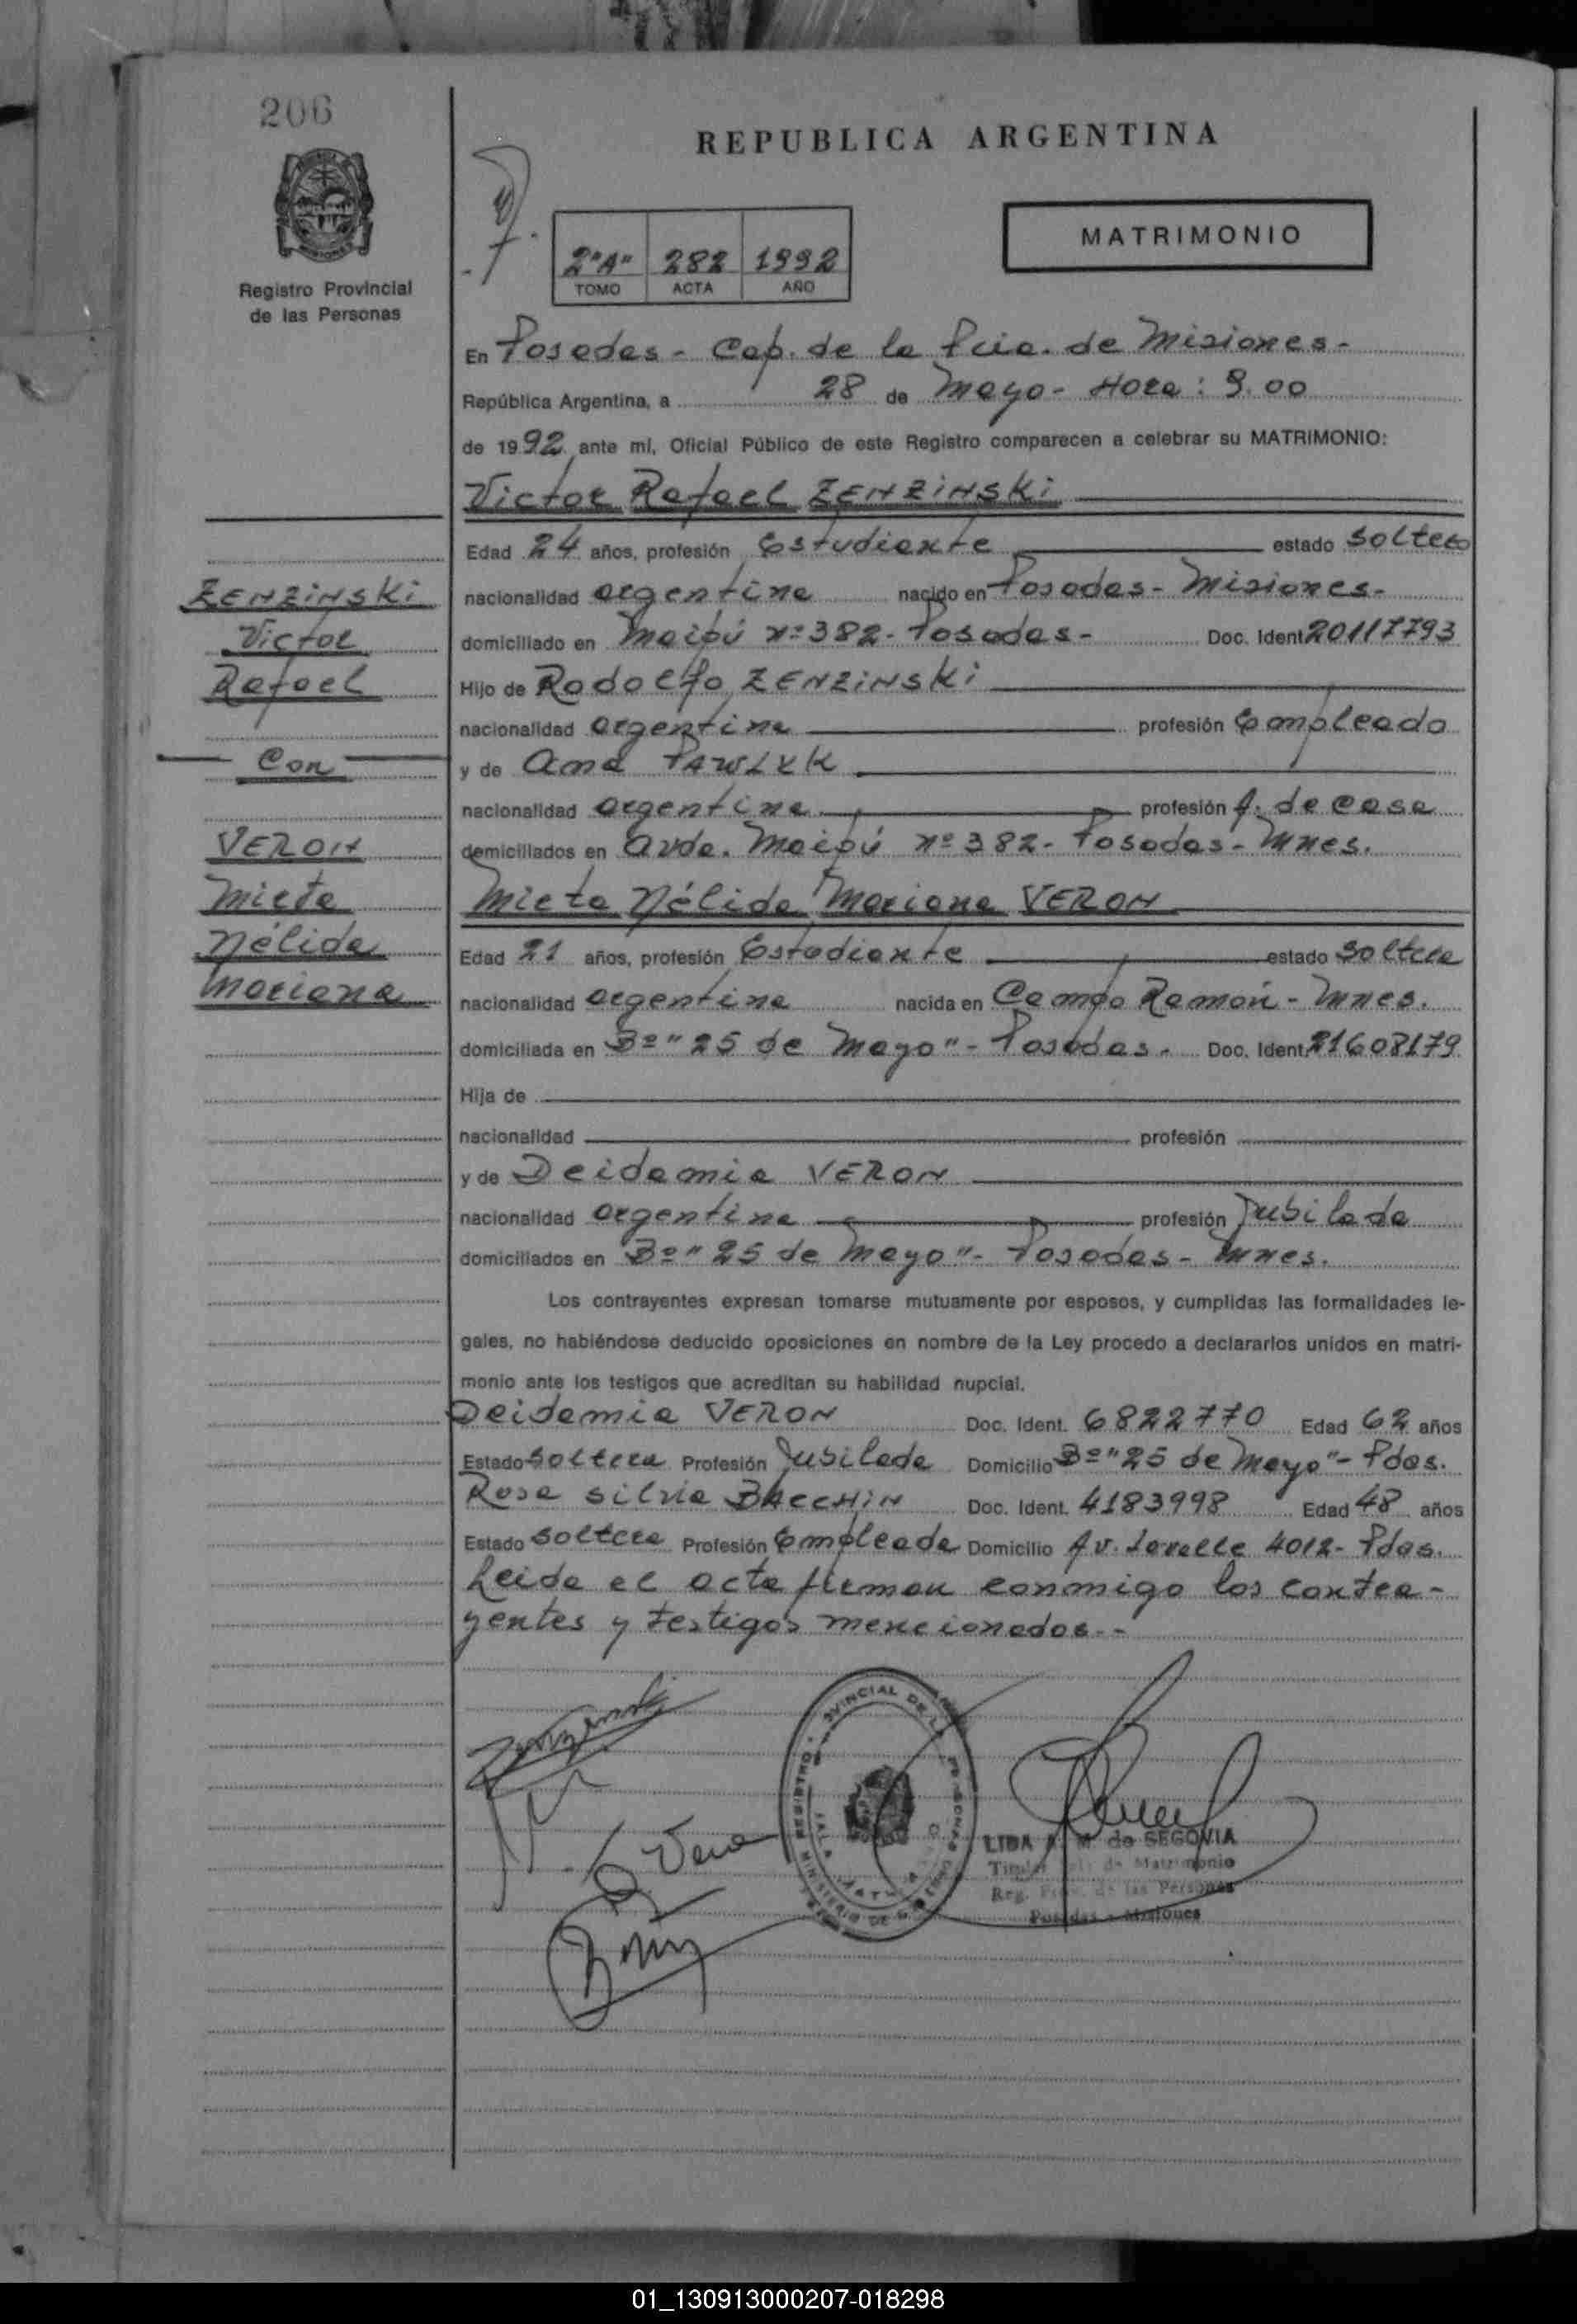 206
REPUBLICA ARGENTINA
MATRIMONIO
Registro Provincial
de las Personas
2"A" 282 1992
TOMO ACTA AÑO
En Posadas - Cap. de la Pcia. de Misiones -
República Argentina, a 28 de Mayo - Hora: 9.00
de 1992 ante mí, Oficial Público de este Registro comparecen a celebrar su MATRIMONIO:
Victor Rafael ZENZINSKi
Edad 24 años, profesión Estudiante estado Soltero
ZENZINSKi
Victor
Rafael
Con
VERON
Mirta
Nélida
Mariana
nacionalidad argentina nacido en Posadas - Misiones -
domiciliado en Maipú Nº 382 - Posadas - Doc. Ident. 20117793
Hijo de Rodolfo ZENZINSKi
nacionalidad argentina profesión Empleado
y de Ana PAWLUK
nacionalidad argentina profesión A. de casa
domicillados en Avda. Maipú Nº 382 - Posadas - Mnes.
Mirta Nélida Mariana VERON
Edad 21 años, profesión Estudiante estado Soltera
nacionalidad argentina nacida en Campo Ramón - Mnes.
domiciliada en Bº "25 de Mayo" - Posadas - Doc. Ident. 21608179
Hija de
nacionalidad profesión
y de Deidamia VERON
nacionalidad argentina profesión Jubilada
domiciliados en Bº "25 de Mayo" - Posadas - Mnes.
Los contrayentes expresan tomarse mutuamente por esposos, y cumplidas las formalidades le-
gales, no habiéndose deducido oposiciones en nombre de la Ley procedo a declararlos unidos en matri-
monio ante los testigos que acreditan su habilidad nupcial.
Deidamia VERON Doc. Ident. 6822770 Edad 62 años
Estado Soltera Profesión Jubilada Domicilio Bº "25 de Mayo" - Pdas.
Rosa Silvia Doc. Ident. 4183998 Edad 48 años
Estado Soltera Profesión Empleada Domicilio Av. Lavalle 4012 - Pdas.
Leida el acta firman conmigo los contra-
yentes y testigos mencionados. -
LIDA M. de SEGOVIA
Titular de Matrimonio
Reg. Prov. de las Personas
Posadas - Misiones
01_130913000207-018298